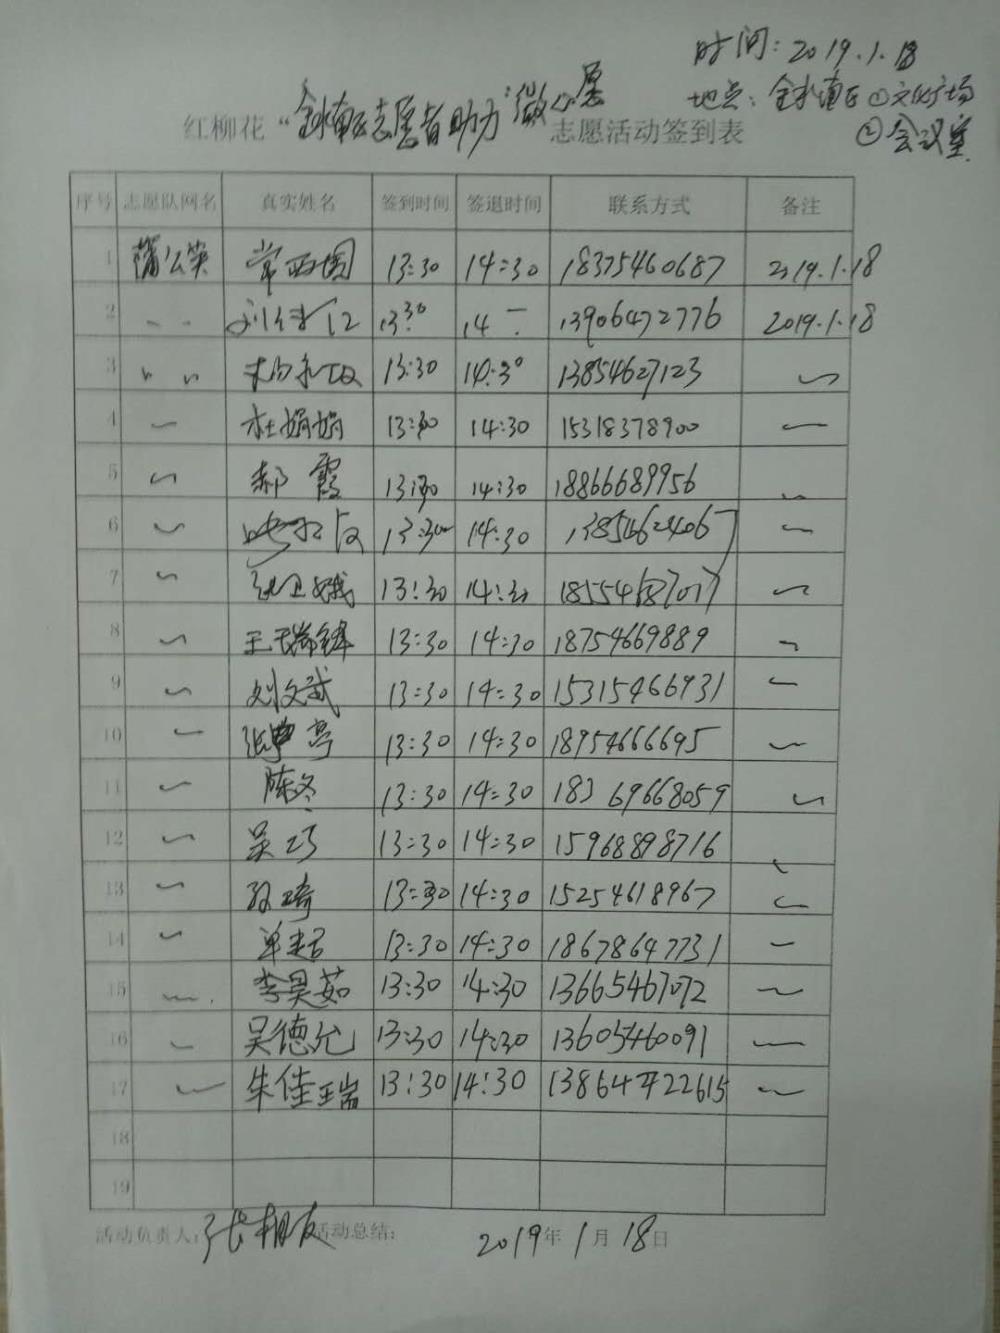 时间:2019.1.18
地点:金水南区①文化广场
②会议室
红柳花“金水南区志愿者助力‘微心愿 志愿活动签到表
序号 志愿队网名 真实姓名 签到时间 签退时间 联系方式 备注
1 蒲公英 常西国 13:30 14:30 18375460687 2019.1.18
2 13:30 14 13906472776 2019.1.18
3 13:30 14:30 13854627123
4 杜娟娟 13:30 14:30 15318378900
5 郝霞 13:30 14:30 18866689956
6 13:30 14:30
7 张卫娥 13:30 14:30
8 王瑞锋 13:30 14:30 18754669889
9 刘文武 13:30 14:30 15315466931
10 13:30 14:30 18954666695
11 陈冬 13:30 14:30 18369668059
12 吴巧 13:30 14:30 15968898716
13 孙琦 13:30 14:30 15254618967
14 单超 13:30 14:30 18678647731
15 李昊茹 13:30 14:30 13665467072
16 吴德允 13:30 14:30 13605460091
17 朱佳瑞 13:30 14:30
18
19
活动负责人:张朋友 活动总结: 2019年1月18日